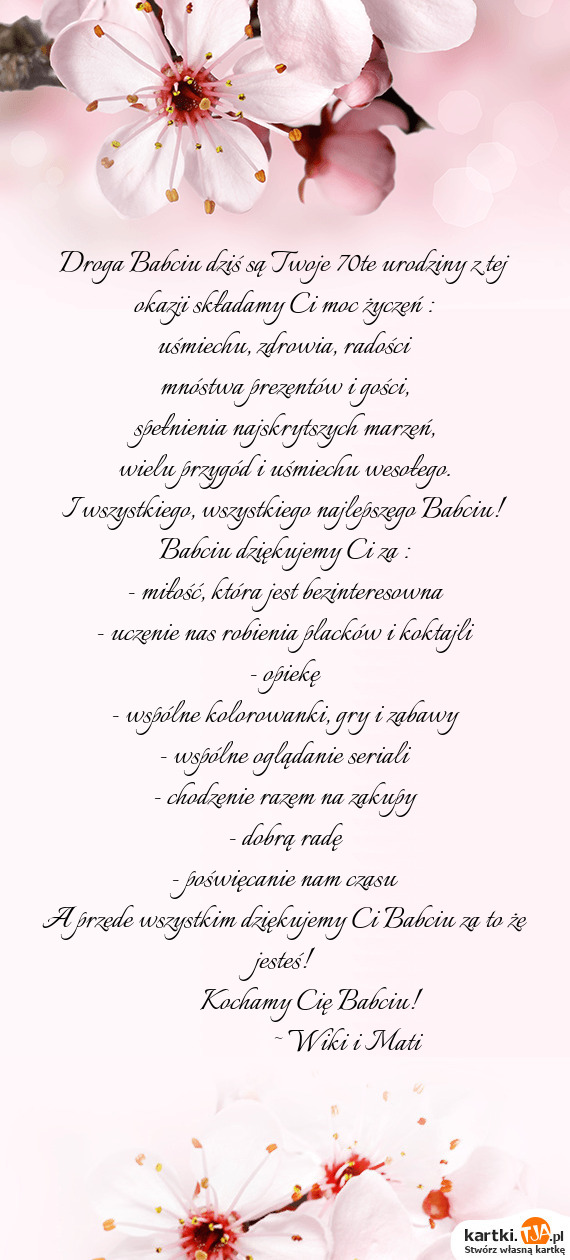 Droga Babciu dziś są Twoje 70te urodziny z tej
okazji składamy Ci moc życzeń :
uśmiechu, zdrowia, radości
mnóstwa prezentów i gości,
spełnienia najskrytszych marzeń,
wielu przygód i uśmiechu wesołego.
I wszystkiego, wszystkiego najlepszego Babciu!
Babciu dziękujemy Ci za :
- miłość, która jest bezinteresowna
- uczenie nas robienia placków i koktajli
- opiekę
- wspólne kolorowanki, gry i zabawy
- wspólne oglądanie seriali
- chodzenie razem na zakupy
- dobrą radę
- poświęcanie nam czasu
A przede wszystkim dziękujemy Ci Babciu za to żę
jesteś!
Kochamy Cię Babciu!
~ Wiki i Mati
kartki.TJA.pl
Stwórz własną kartkę